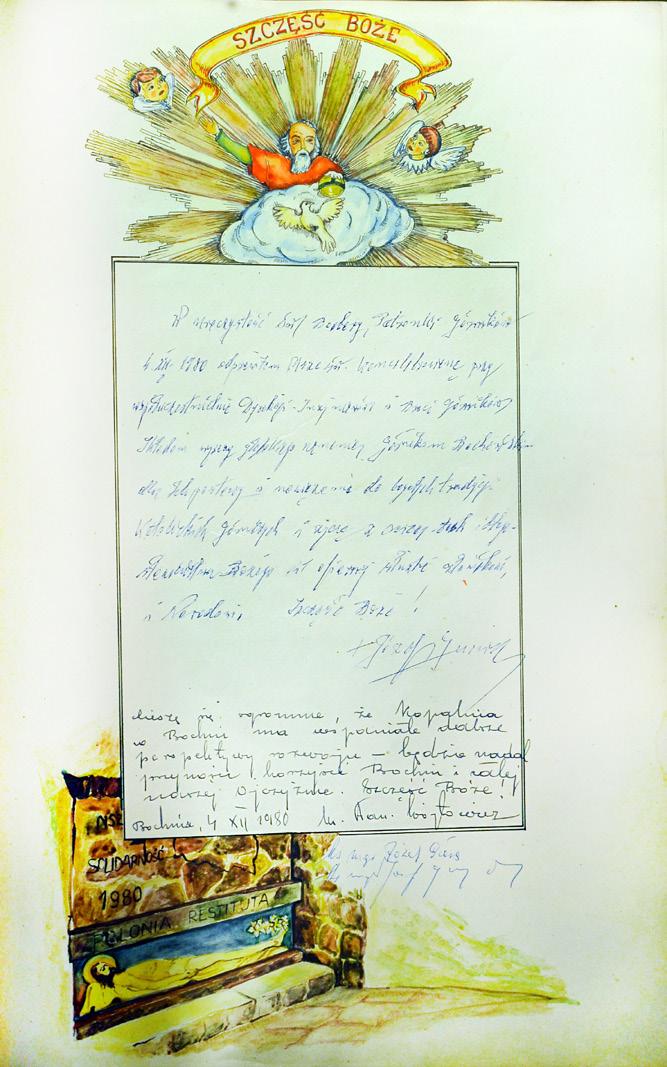 SZCZĘŚĆ BOŻE
W uroczystość Św. Barbary, Patronki Górników
4. XII 1980 odprawiłem Mszę św. koncelebrowaną przy
współuczestnictwie Dyrekcji - Inżynierów i Braci Górników
Składam wyrazy głębokiego uznania Górnikom Bocheńskim
dla i nawiązanie do tradycji
Katolickich Górniczych i życzę z serca
Błogosławieństwa Bożego w ofiarnej służbie
i Narodowi. Szczęść Boże!
+ Józef
cieszę się ogromnie, że Kopalnia
w Bochni ma wspaniałe dalsze
perspektywy rozwoju - będzie nadal
przynosić korzyści Bochni i całej
naszej Ojczyźnie. Szczęść Boże
Bochnia, 4 XII 1980 Wójtowicz
ks. mgr Józef
ks. mgr Józef
NSZ
SOLIDARNOŚĆ
1980
POLONIA RESTITUTA